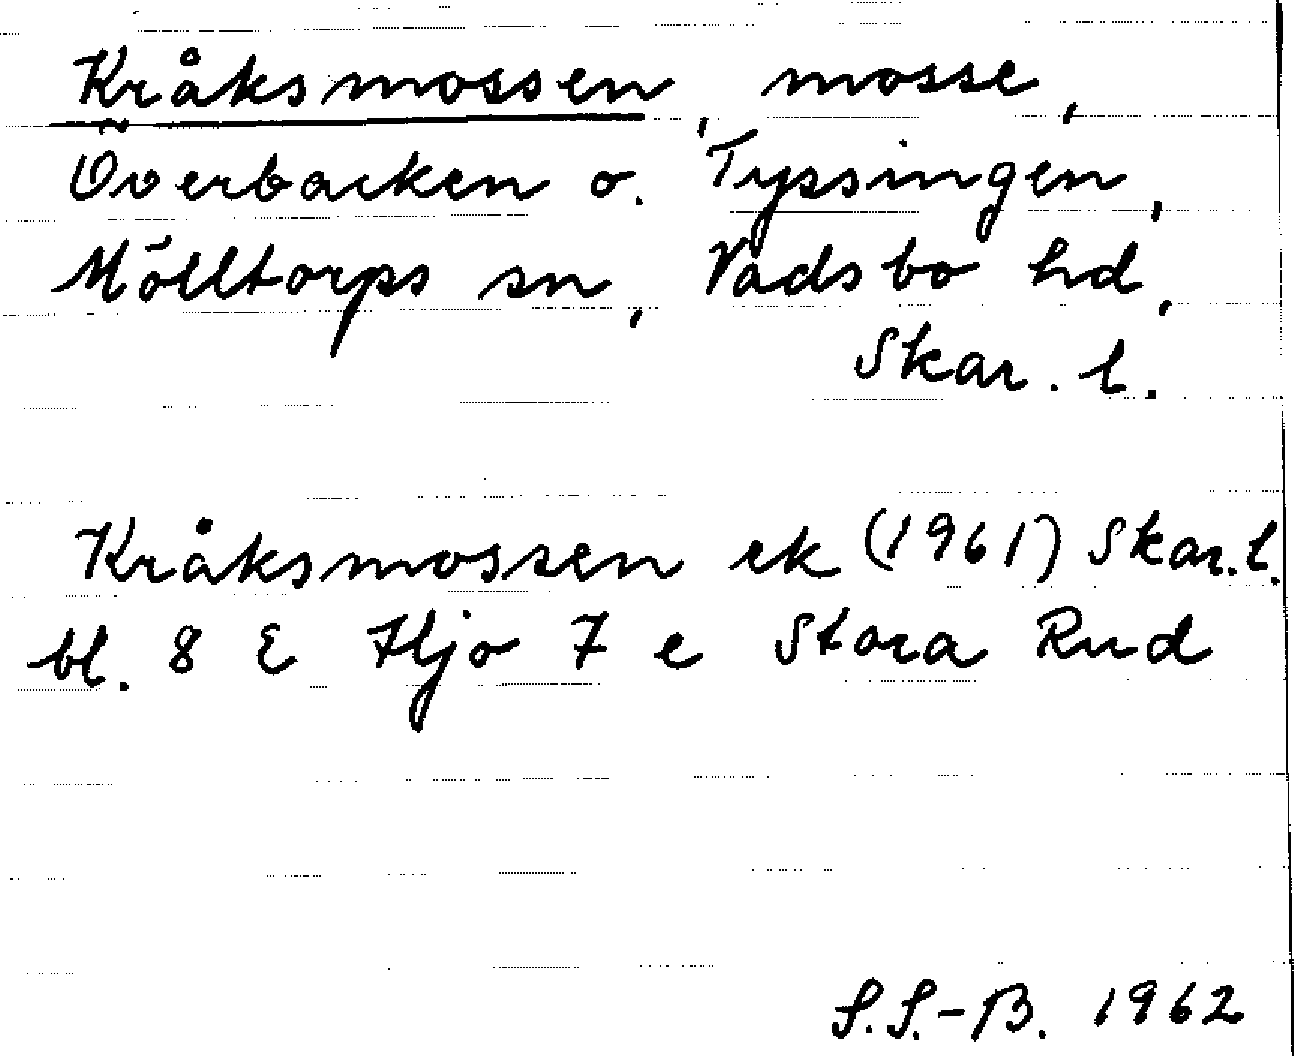 Kråksmossen, mosse,
Överbacken o. Tyssingen,
Mölltorps sn, Vadsbo hd,
Skar. l.
Kråksmossen ek (1961) Skar. l.
bl. 8 E Hjo 7 e Stora Rud
S.S.-B. 1962